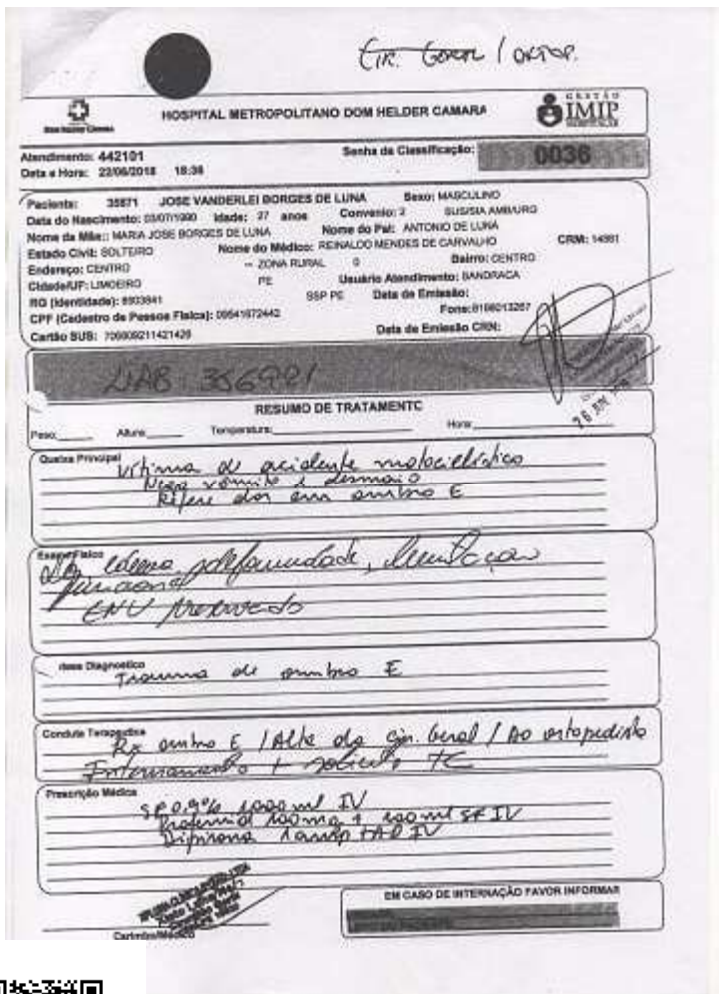 Cir. Geral / ortop.
HOSPITAL METROPOLITANO DOM HELDER CAMARA
GESTÃO
IMIP
Atendimento: 442101 Senha de Classificação: 0036
Data e Hora: 22/06/2018 18:36
Paciente: 35871 JOSE VANDERLEI BORGES DE LUNA Sexo: MASCULINO
Data do Nascimento: 03/07/1990 Idade: 27 anos Convenio: 2 SUS/SIA AMB/URG
Nome da Mãe:: MARIA JOSE BORGES DE LUNA Nome do Pai: ANTONIO DE LUNA
Estado Civil: SOLTEIRO Nome do Médico: REINALDO MENDES DE CARVALHO CRM: 14391
Endereço: CENTRO -- ZONA RURAL 0 Bairro: CENTRO
Cidade/UF: LIMOEIRO PE Usuário Atendimento: BANDRACA
RG (Identidade): 8933841 SSP PE Data de Emissão:
CPF (Cadastro de Pessoa Física): 09541672442 Fone:
Cartão SUS: Data de Emissão CRN:
356921
26 JUN
RESUMO DE TRATAMENTO
Peso: Altura: Temperatura: Hora:
Queixa Principal
Vítima de acidente motociclístico
Nega vômito e desmaio
Refere dor em ombro E
Exame Físico
edema, deformidade, limitação
funcional
ENV preservado
Diagnostico
Trauma de ombro E
Conduta Terapeutica
Rx ombro E / Alta da cir. Geral / Ao ortopedista
Internamento + solicito TC
Prescrição Médica
SF 0,9% 1000 ml IV
Profenid 100 mg + 100 ml SF IV
Dipirona 1 amp + AD IV
Carimbo/Médico
EM CASO DE INTERNAÇÃO FAVOR INFORMAR